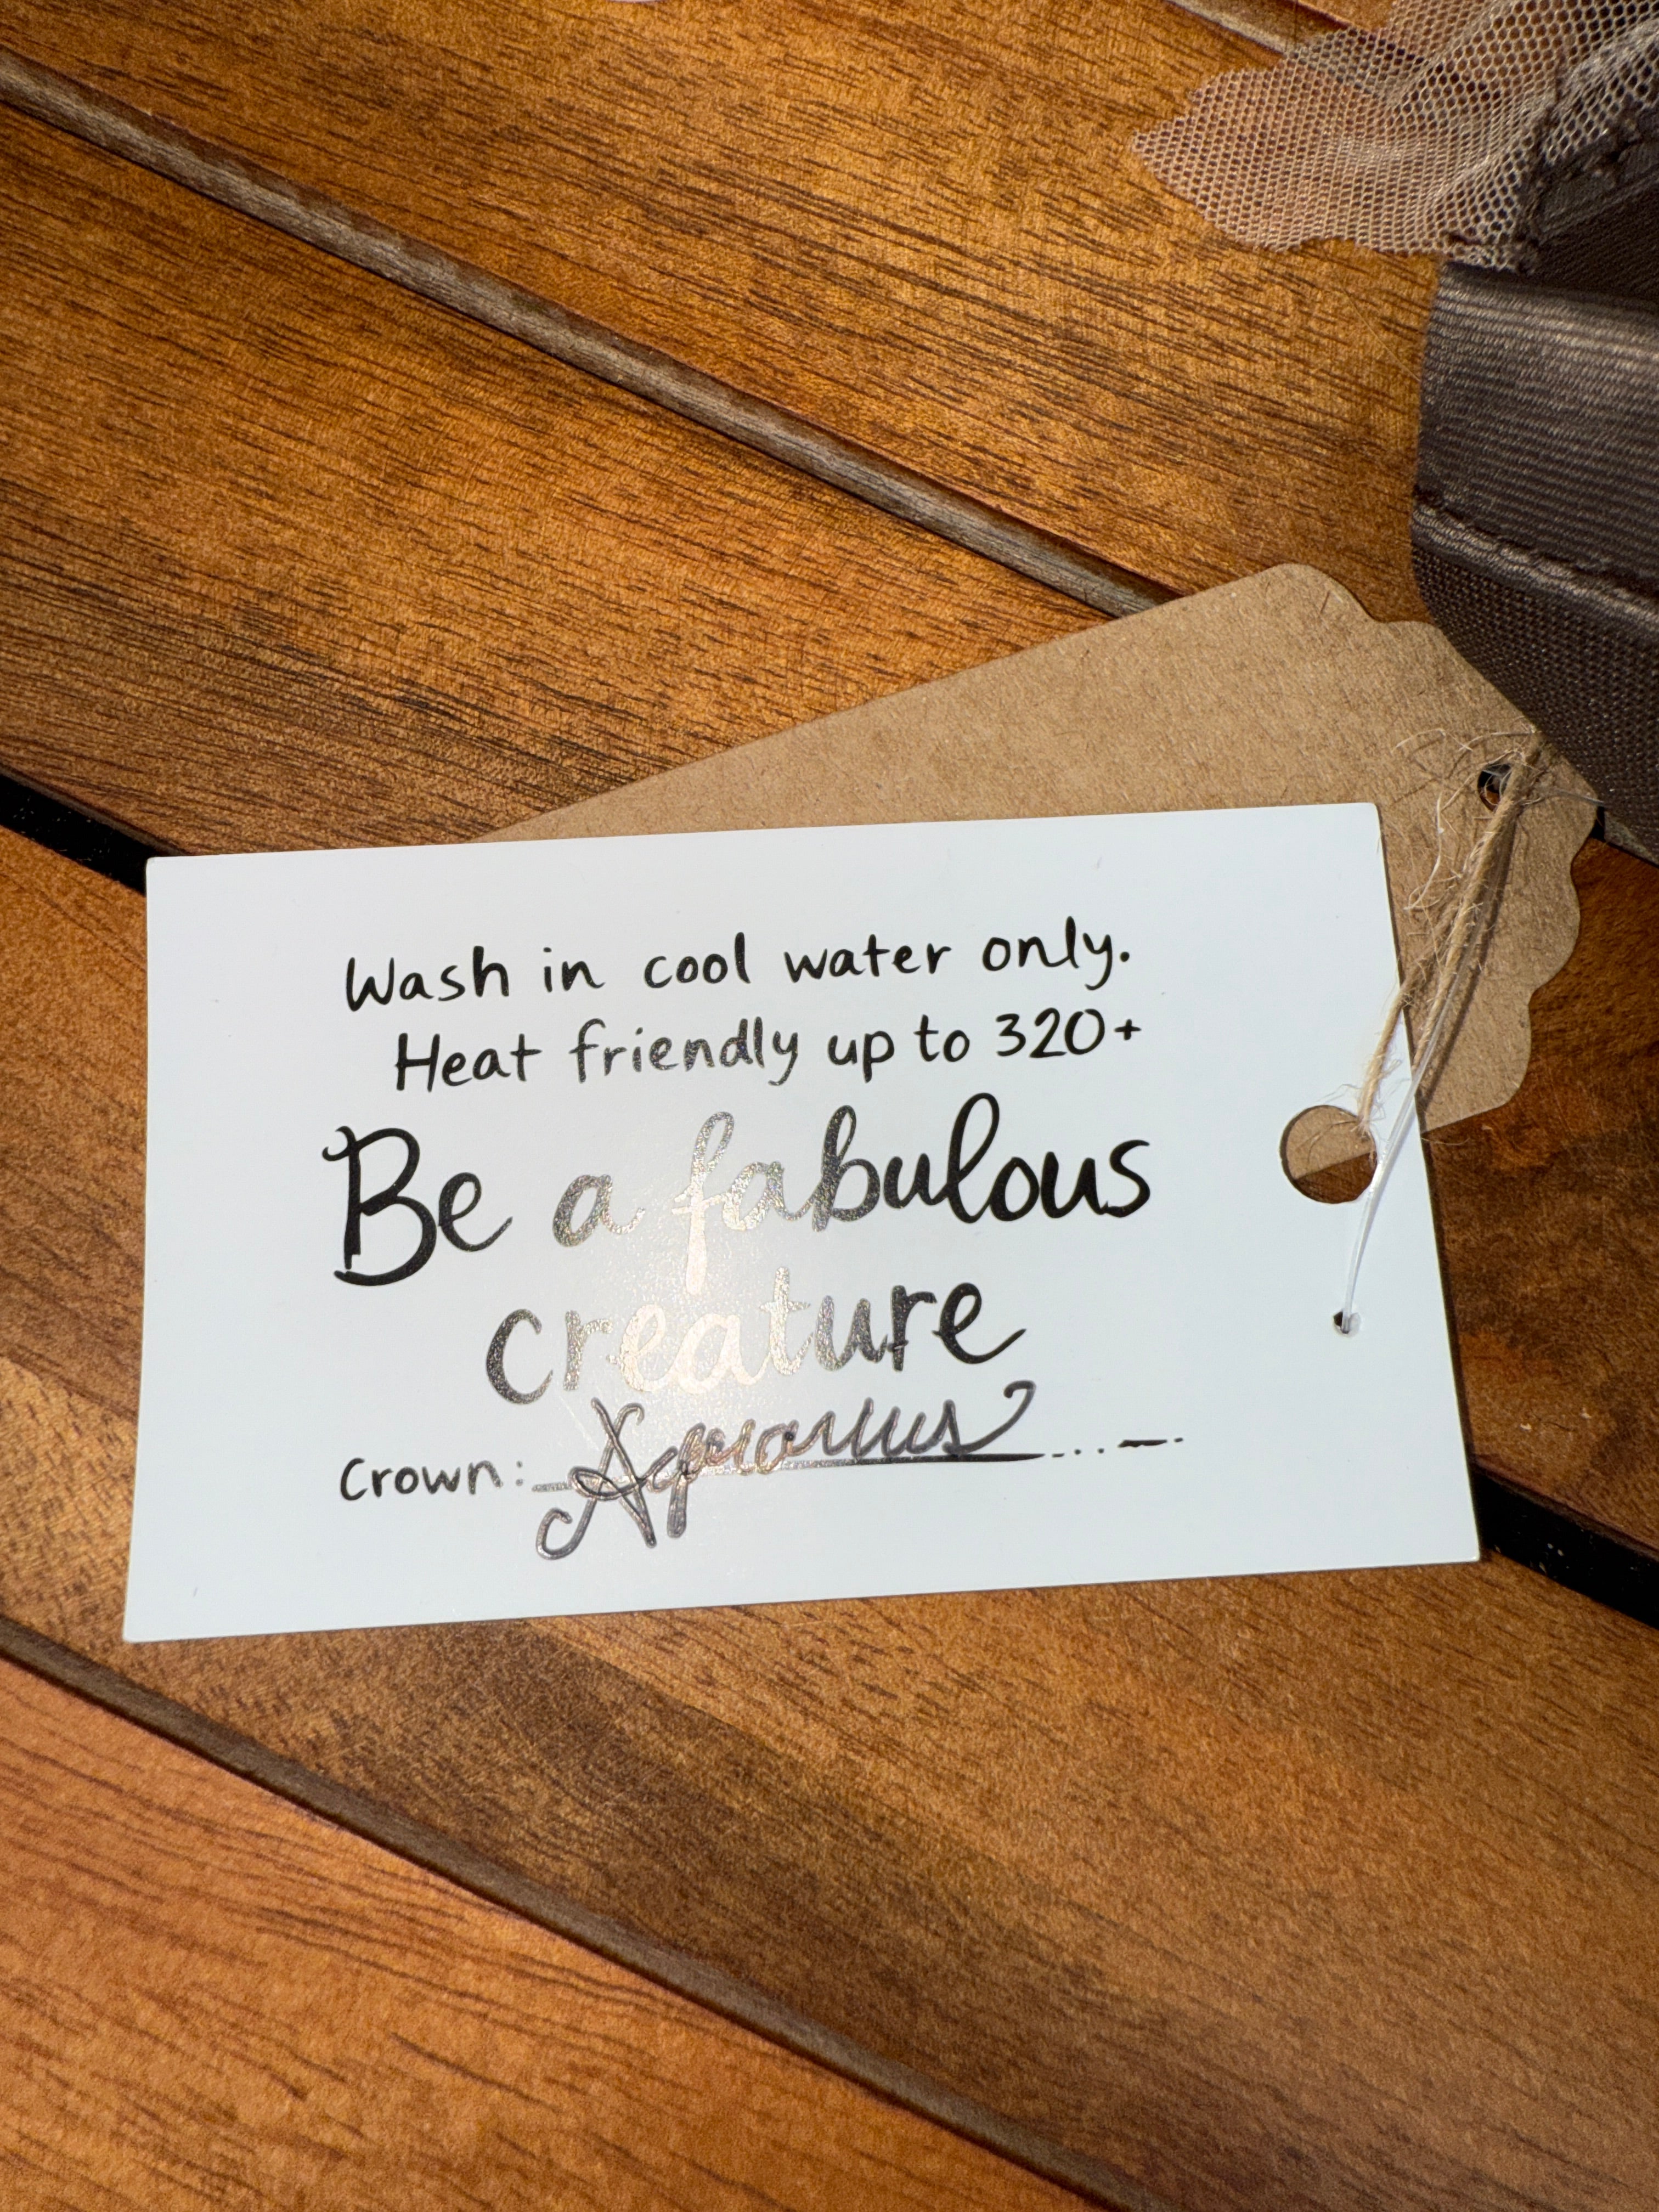 Wash in cool water only.
Heat friendly up to 320+
Be a fabulous
creature
Crown: Aquarius